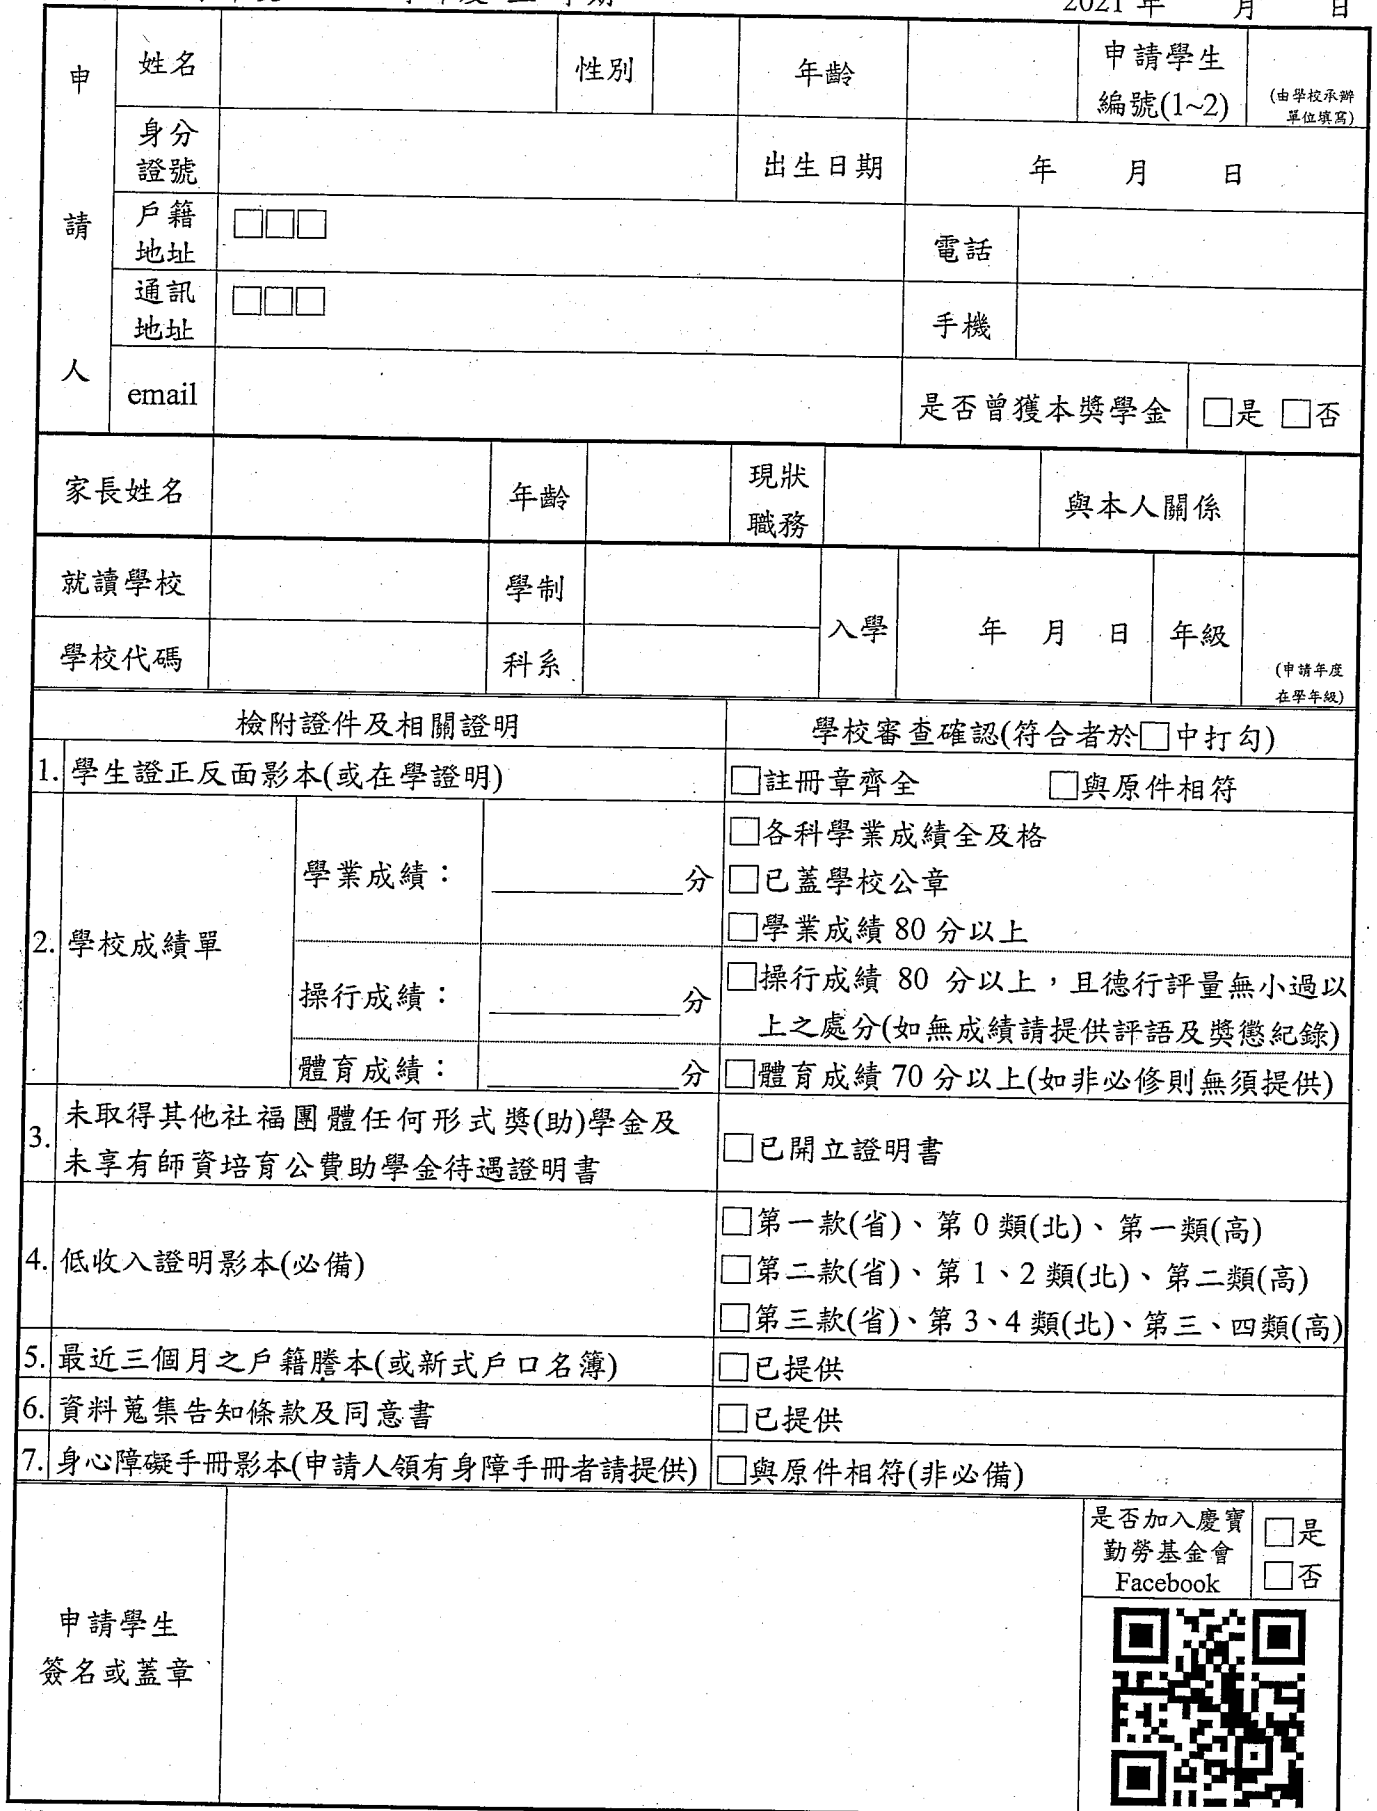 2021 年 月 日
申請人
姓名 性別 年齡 申請學生
編號(1~2) (由學校承辦
單位填寫)
身分
證號 出生日期 年 月 日
戶籍
地址 □□□ 電話
通訊
地址 □□□ 手機
email 是否曾獲本獎學金 □是 □否
家長姓名 年齡 現狀
職務 與本人關係
就讀學校 學制 入學 年 月 日 年級
學校代碼 科系 (申請年度
在學年級)
檢附證件及相關證明 學校審查確認(符合者於□中打勾)
1. 學生證正反面影本(或在學證明) □註冊章齊全 □與原件相符
2. 學校成績單
學業成績: 分
□各科學業成績全及格
□已蓋學校公章
□學業成績 80 分以上
操行成績: 分
□操行成績 80 分以上,且德行評量無小過以
上之處分(如無成績請提供評語及獎懲紀錄)
體育成績: 分 □體育成績 70 分以上(如非必修則無須提供)
3. 未取得其他社福團體任何形式獎(助)學金及
未享有師資培育公費助學金待遇證明書
□已開立證明書
4. 低收入證明影本(必備)
□第一款(省)、第 0 類(北)、第一類(高)
□第二款(省)、第 1、2 類(北)、第二類(高)
□第三款(省)、第 3、4 類(北)、第三、四類(高)
5. 最近三個月之戶籍謄本(或新式戶口名簿) □已提供
6. 資料蒐集告知條款及同意書 □已提供
7. 身心障礙手冊影本(申請人領有身障手冊者請提供) □與原件相符(非必備)
申請學生
簽名或蓋章
是否加入慶寶
勤勞基金會
Facebook
□是
□否